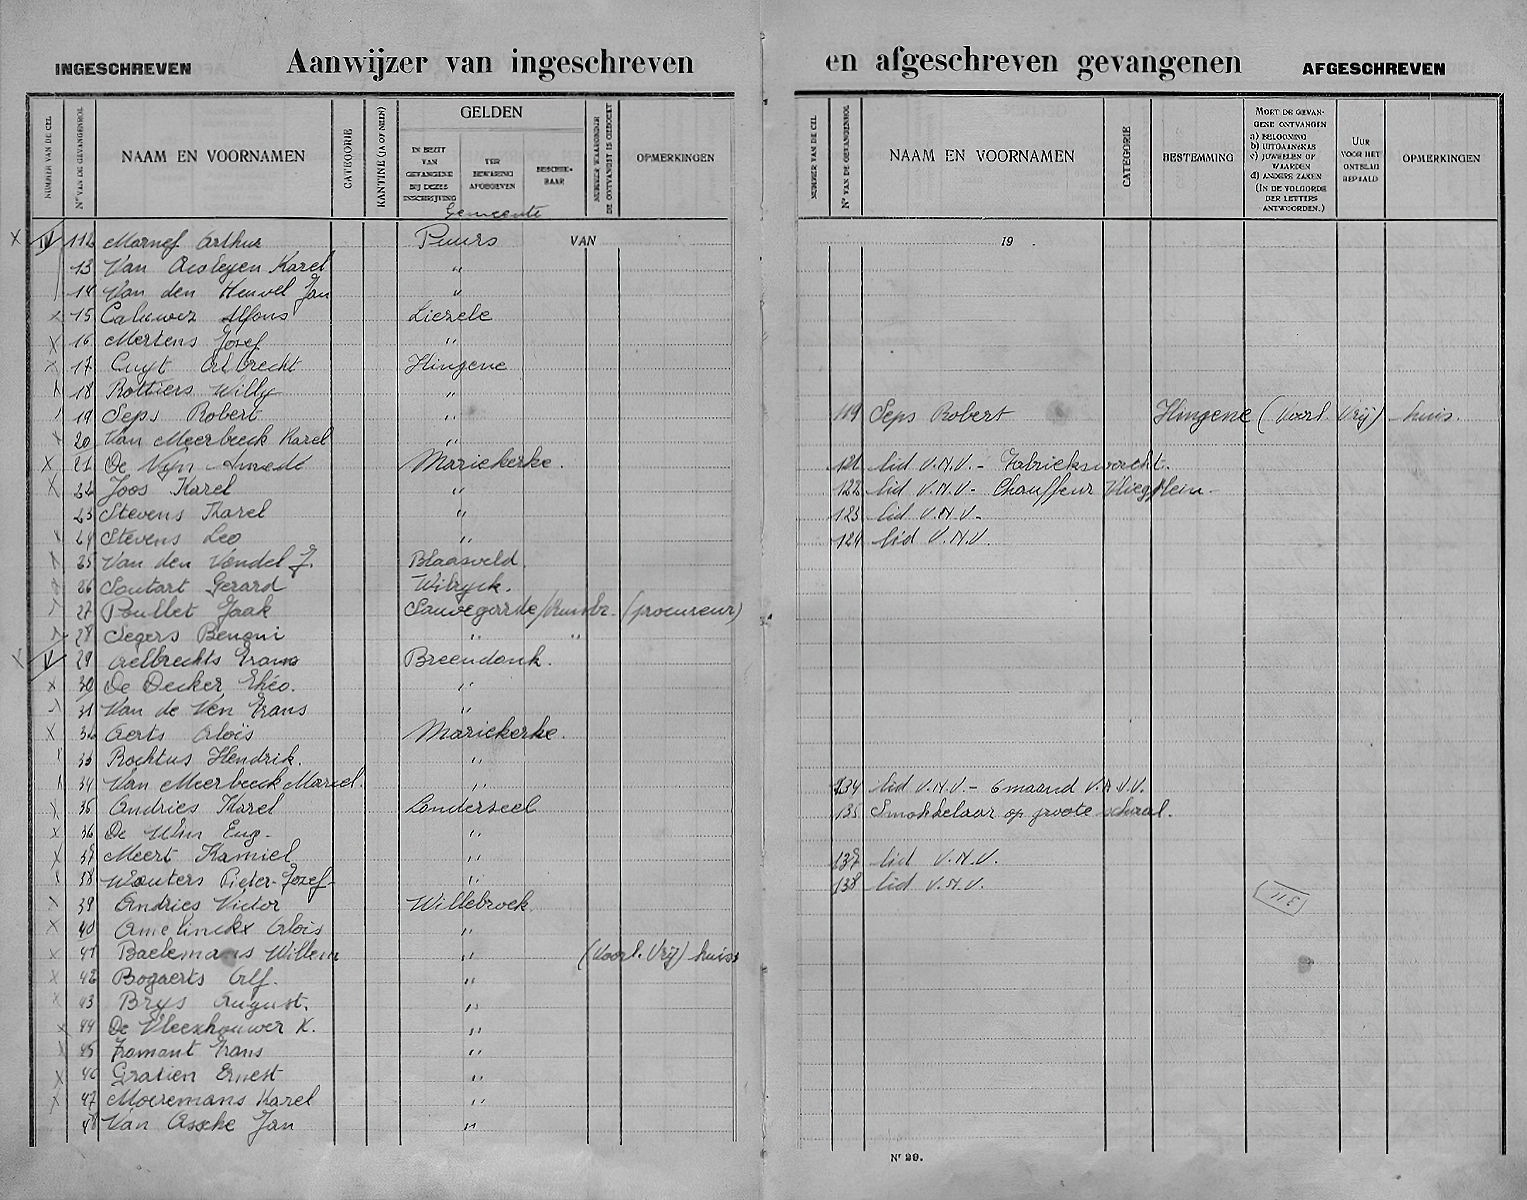 INGESCHREVEN Aanwijzer van ingeschreven
NUMMER VAN DE CEL
Nr VAN DE GEVANGENROL
NAAM EN VOORNAMEN
CATEGORIE
KANTINE (JA OF NEEN)
GELDEN
IN BEZIT VAN GEVANGENE BIJ DEZES INSCHRIJVING
TER BEWARING AFGEGEVEN
BESCHIKBAAR
OPMERKINGEN
Gemeente
VAN
X V 112 Marnef Arthur Puurs
13 Van Karel "
14 Van den Heuvel Jan "
x 15 Caluwez Alfons Liezele
x 16 Mertens Jozef "
x 17 Cuyt Albrecht Hingene
18 Rottiers Willy "
19 Seps Robert "
x 20 Van Meerbeeck Karel "
x 21 De Vijn Amedé Mariekerke.
x 22 Joos Karel "
23 Stevens Karel "
24 Stevens Leo "
25 Van den Vondel J. Blaasveld.
26 Soutart Gerard Wilryck.
27 Poullet Jaak Sauvegarde/Ruisbr. (procureur)
28 Segers Benoni " "
x V 29 Aelbrechts Frans Breendonk.
x 30 De Decker Théo. "
31 Van de Ven Frans "
x 32 Aerts Aloïs Mariekerke.
33 Rochtus Hendrik. "
34 Van Meerbeeck Marcel. "
x 35 Andries Karel Londerzeel
x 36 De Win Eug. "
x 37 Meert Kamiel "
38 Wouters Pieter-Jozef "
39 Andries Victor Willebroek.
x 40 Amelinckx Alois "
x 41 Baelemans Willem " (Voorl. Vrij) huis
x 42 Bogaerts Alf. "
x 43 Brys August. "
x 44 De Vleeshouwer K. "
x 45 Fromont Frans "
x 46 Gratien Ernest "
x 47 Moeremans Karel "
48 Van Assche Jan "
en afgeschreven gevangenen AFGESCHREVEN
NUMMER VAN DE CEL
Nr VAN DE GEVANGENROL
NAAM EN VOORNAMEN
CATEGORIE
BESTEMMING
MOET DE GEVANGENE ONTVANGEN
a) BELOONING
b) UITGAANSKAS
c) JUWEELEN OF WAARDEN
d) ANDERE ZAKEN
(IN DE VOLGORDE DER LETTERS ANTWOORDEN.)
UUR VOOR HET ONTSLAG BEPAALD
OPMERKINGEN
19 .
119 Seps Robert Hingene (Voorl. Vrij) huis.
121 lid V.N.V. - Fabriekswacht.
122 lid V.N.V - Chauffeur Vliegplein.
123 lid V.N.V -
124 lid V.N.V.
134 lid V.N.V - 6 maand V.N.V.
135 Smokkelaar op groote schaal.
137 lid V.N.V.
138 lid V.N.V.
Nr 29.